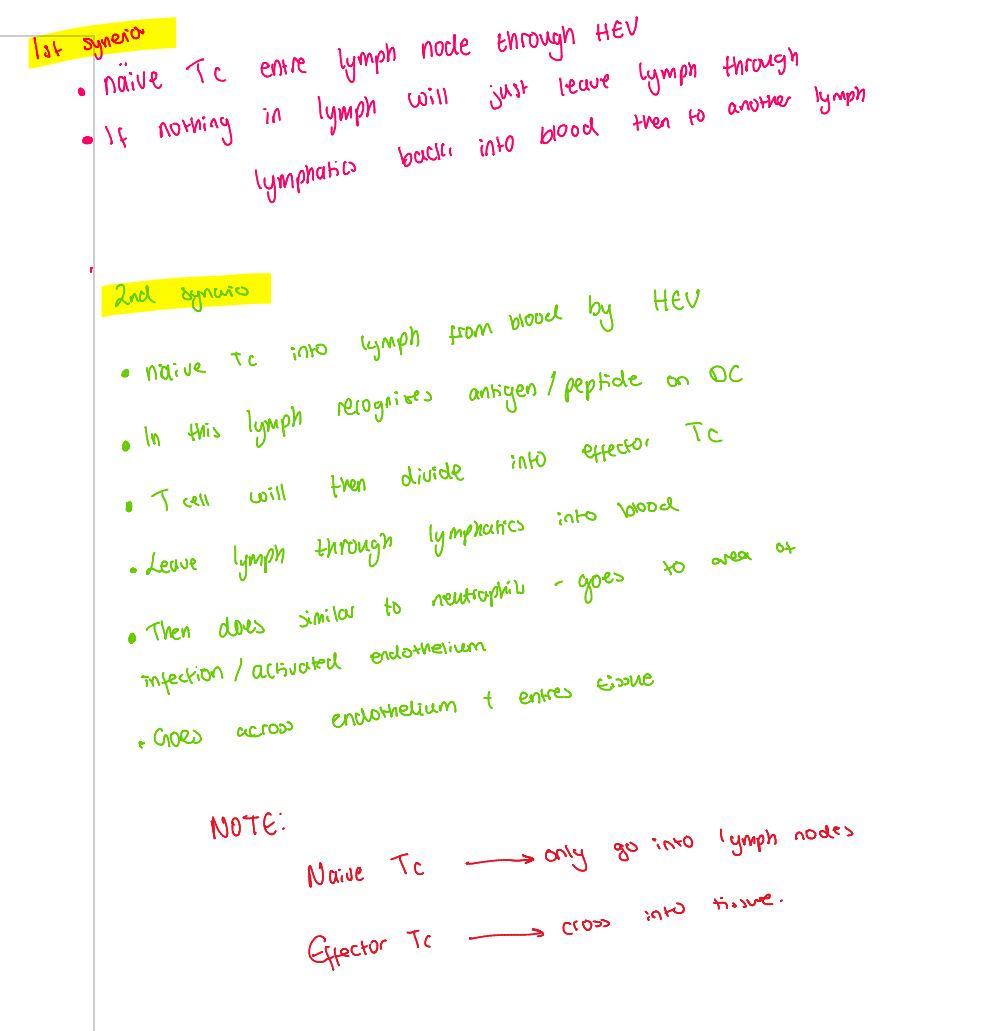 1st synerio
• näive Tc entre lymph node through HEV
• If nothing in lymph will just leave lymph through
lymphatics back into blood then to another lymph
2nd synario
• näive Tc into lymph from blood by HEV
• In this lymph recognises antigen/peptide on DC
• T cell will then divide into effector Tc
• Leave lymph through lymphatics into blood
• Then does similar to neutrophils - goes to area of
infection/activated endothelium
• Goes across endothelium + entres tissue
NOTE:
Naive Tc → only go into lymph nodes
Effector Tc → cross into tissue.